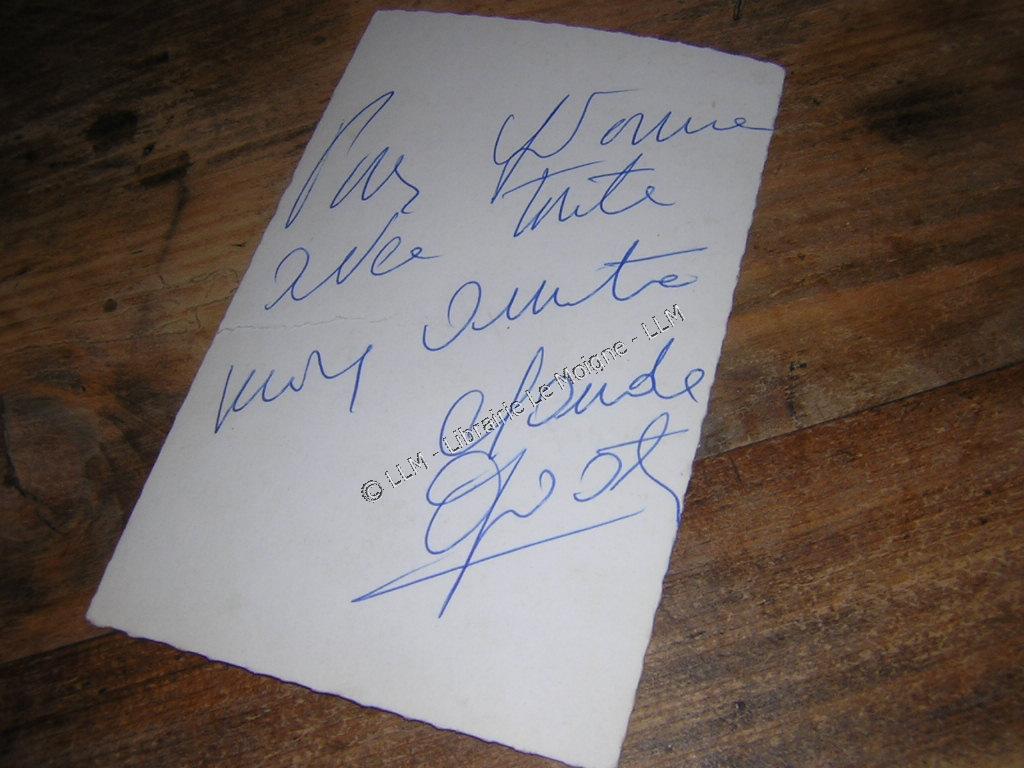 Pour Yvonne
avec toute
mon amitié
Claude
© LLM - Librairie Le Moigne - LLM